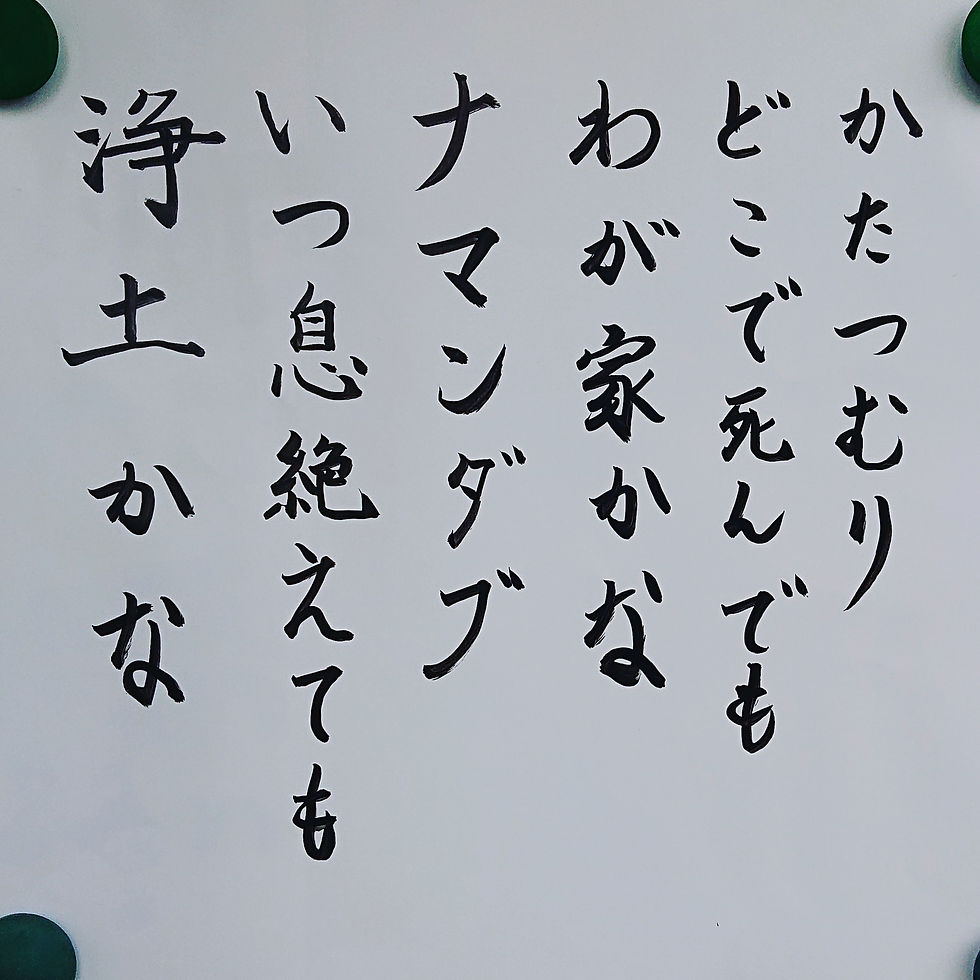 かたつむり
どこで死んでも
わが家かな
ナマンダブ
いつ息絶えても
浄土かな